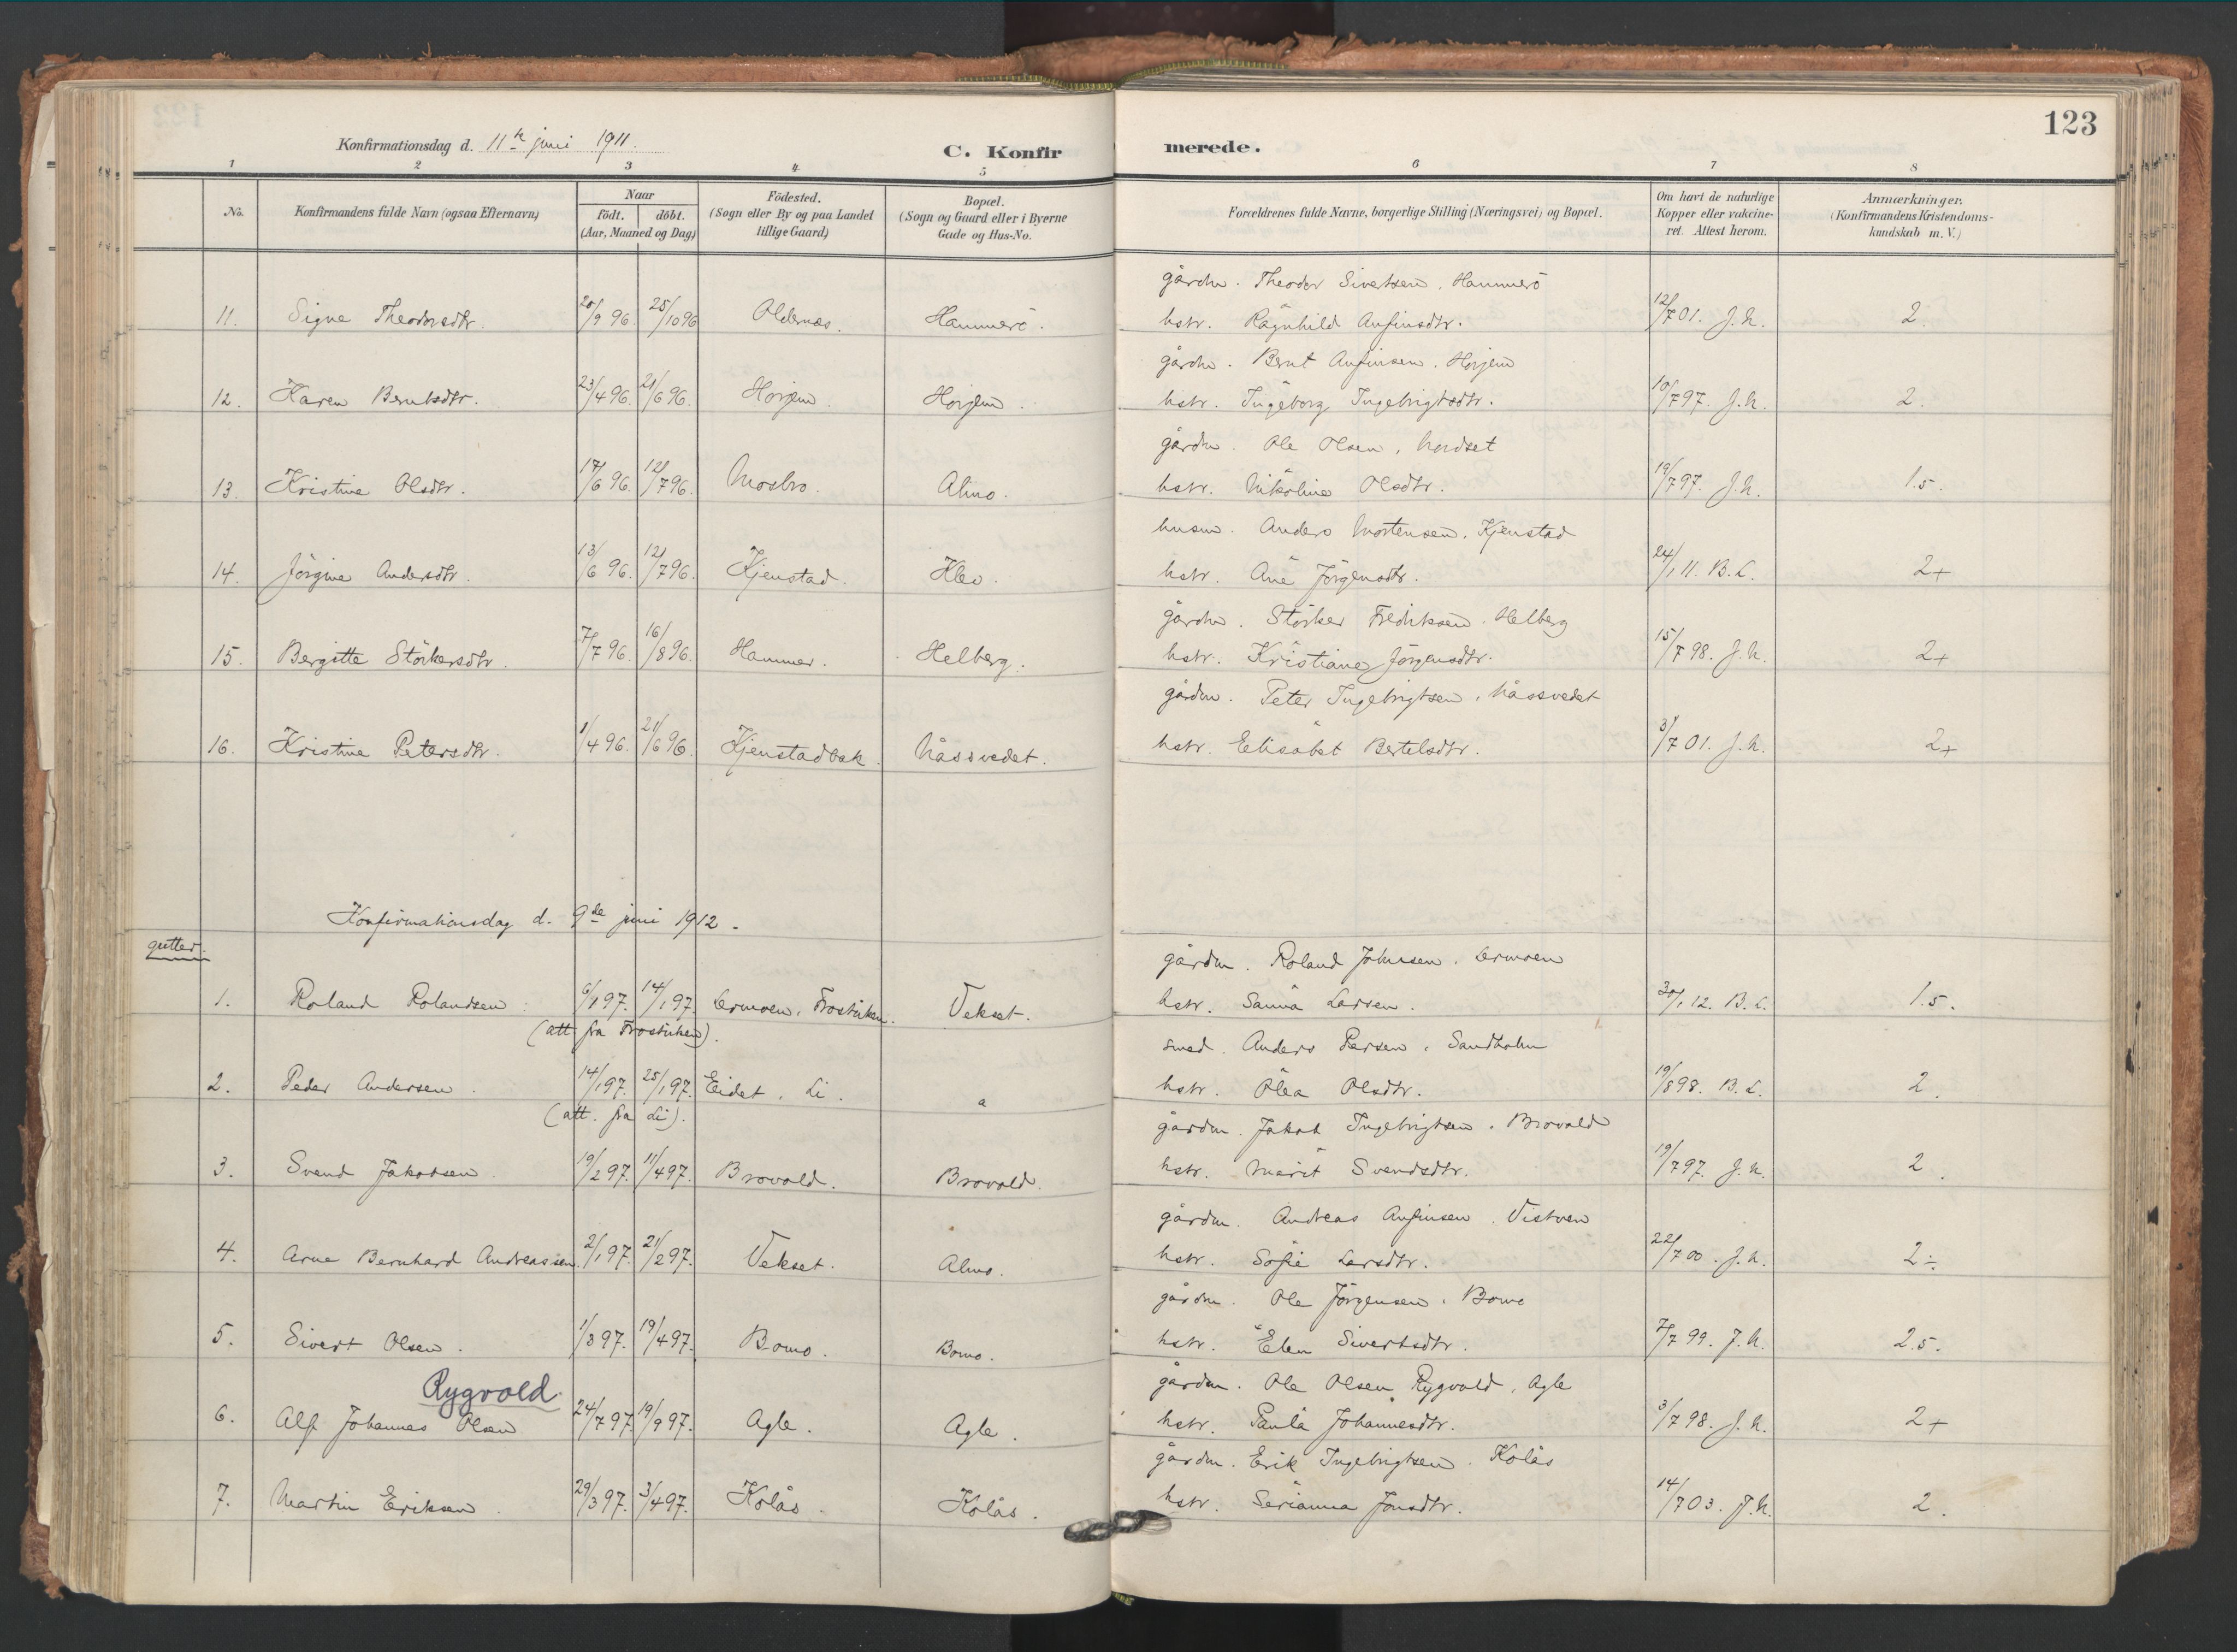 123
Konfirmationsdag d. 11te juni 1911.
C. Konfirmerede.
1 2 3 4 5 6 7 8
No.
Konfirmandens fulde Navn (ogsaa Efternavn)
Naar
födt. döbt.
(Aar, Maaned og Dag)
Födested.
(Sogn eller By og paa Landet
tillige Gaard)
Bopæl.
(Sogn og Gaard eller i Byerne
Gade og Hus-No.
Forældrenes fulde Navne, borgerlige Stilling (Næringsvei) og Bopæl.
Om havt de naturlige
Kopper eller vakcine-
ret. Attest herom.
Anmærkninger.
(Konfirmandens Kristendoms-
kundskab m. V.)
gårdm. Theodor Sivertsen, Hammerö
11. Signe Theodorsdtr. 20/9 96. 25/10 96 Oldernæs. Hammerö. hstr. Ragnhild Anfinsdtr. 12/7 01. J.N. 2.
gårdm. Bernt Anfinsen, Horjem
12. Karen Berntsdtr. 23/4 96. 21/6 96. Horjem. Horjem. hstr. Ingeborg Ingebrigtsdtr. 19/7 97. J.N. 2.
gårdm. Ole Olsen, Nordset
13. Kristine Olsdtr. 17/6 96. 12/7 96. Mosbro. Almo. hstr. Nikoline Olsdtr. 19/7 97. J.N. 1.5.
husm. Anders Mortensen, Kjenstad
14. Jörgine Andersdtr. 13/6 96. 12/7 96. Kjenstad. Klev. hstr. Ane Jörgensdtr. 24/1 11. B.L. 2+
gårdm. Störker Fredriksen, Helberg
15. Bergitte Störkersdtr. 7/7 96. 16/8 96. Hammer. Helberg. hstr. Kristiane Jörgensdtr. 15/7 98. J.N. 2+
gårdm. Peter Ingebrigtsen, Nåssvedet
16. Kristine Petersdtr. 1/4 96. 21/6 96. Kjenstadbak. Nåssvedet. hstr. Elisabet Bertelsdtr. 3/7 01. J.N. 2+
Konfirmationsdag d. 9de juni 1912.
gutter.
gårdm. Roland Johnsen, Lermoen
1. Roland Rolandsen 6/1 97. 14/1 97. Lermoen, Frostviken. Vekset. hstr. Sanna Larsen. 30/1 12. B.L. 1.5.
(att. fra Frostviken).
smed. Anders Persen, Sandholm
2. Peder Andersen. 14/1 97. 25/1 97. Eidet, Li. a hstr. Olea Olsdtr. 19/8 98. B.L. 2.
(att. fra Li).
gårdm. Jakob Ingebrigtsen, Brovold
3. Svend Jakobsen. 19/2 97. 11/4 97. Brovold. Brovold. hstr. Marit Svendsdtr. 19/7 97. J.N. 2.
gårdm. Andreas Anfinsen, Vistven
4. Arne Bernhard Andreassen. 2/1 97. 21/2 97. Vekset. Almo. hstr. Sofie Larsdtr. 22/7 00. J.N. 2÷.
gårdm. Ole Jörgensen, Bomo
5. Sivert Olsen. 1/3 97. 19/4 97. Bomo. Bomo. hstr. Elen Sivertsdtr. 7/7 99. J.N. 2.5.
Rygvold
gårdm. Ole Olsen Rygvold, Agle
6. Alf Johannes Olsen 24/7 97. 19/9 97. Agle. Agle. hstr. Paula Johannesdtr. 3/7 98. J.N. 2+
gårdm. Erik Ingebrigtsen, Kolås
7. Martin Eriksen. 29/3 97. 3/4 97. Kolås. Kolås. hstr. Serianna Jonsdtr. 14/7 03. J.N. 2.